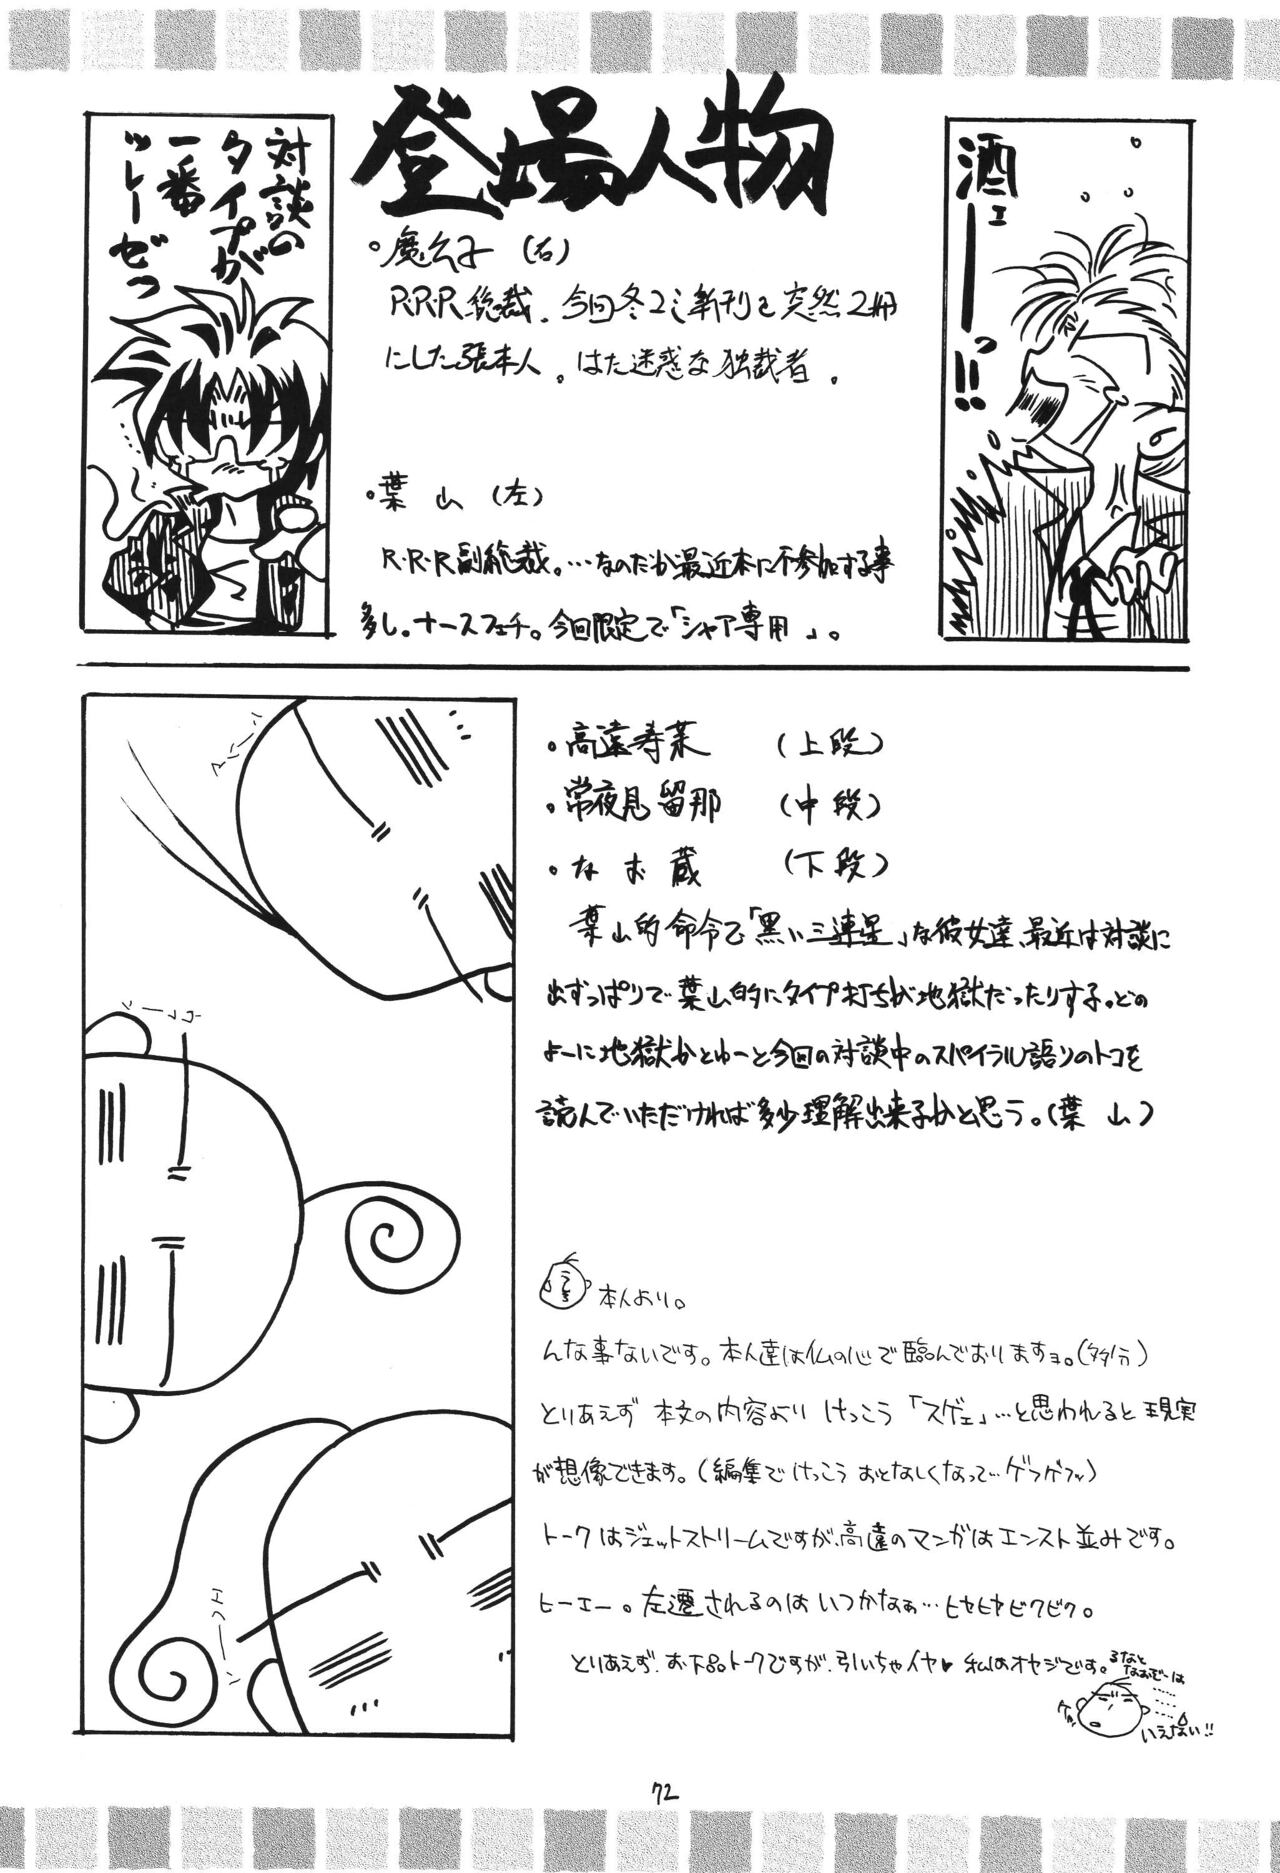 登場人物
酒ェーーっ!!
対談の
タイプが
一番
ツレーぜっ
。魔公子（右）
R・R・R総裁、今回冬コミ新刊を突然2冊
にした張本人。はた迷惑な独裁者。
・葉山（左）
R・R・R副総裁。…なのだが最近本に不参加する事
多し。ナースフェチ。今回限定で「シャア専用」。
。高遠寿葉（上段）
。常夜見留那（中段）
・なお蔵（下段）
葉山的命令で「黒い三連星」な彼女達、最近は対談に
出ずっぱりで葉山的にタイプ打ちが地獄だったりする。どの
よーに地獄かとゆーと今回の対談中のスパイラル語りのトコを
読んでいただければ多少理解出来るかと思う。（葉山）
本人より。
んな事ないです。本人達は仏の心で臨んでおりますョ。（多分）
とりあえず本文の内容より けっこう「スゲェ」…と思われると現実
が想像できます。（編集でけっこう おとなしくなって…ゲフゲフッ）
トークはジェットストリームですが、高遠のマンガはエンスト並みです。
ヒーエー。左遷されるのはいつかなぁ…ヒヤヒヤビクビク。
とりあえず、お下品トークですが、引いちゃイヤ♥ 私はオヤジです。
るなと
なおぞーは
……
いえない!!
72